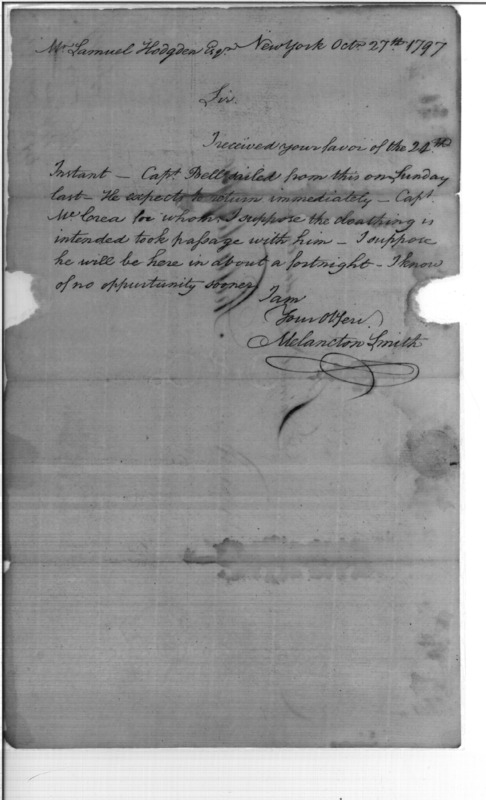 Mr. Samuel Hodgden Esqr. New York Octr. 27th 1797
Sir.
I received your favor of the 24th
Instant – Capt. Bell sailed from this on Sunday
last – He expects to return immediately – Capt.
McCrea for whom I suppose the cloathing is
intended took passage with him – I suppose
he will be here in about a fortnight – I know
of no oppurtunity sooner
I am
Your Obser.
Melancton Smith